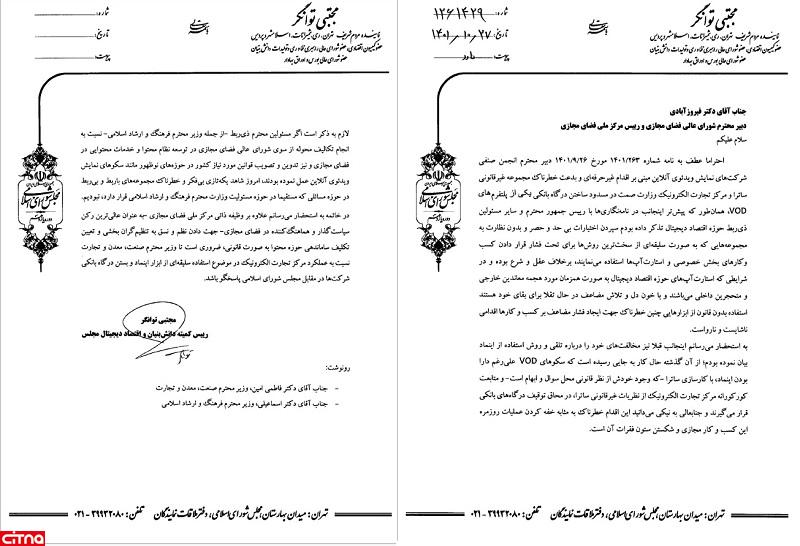 مجتبی توانگر
نماینده مردم شریف تهران، ری، شمیرانات، اسلامشهر و پردیس
عضو کمیسیون اقتصادی، عضو شورای عالی راهبری فناوری و تولیدات دانش بنیان
عضو شورای عالی بورس و اوراق بهادار
شماره: ۱۲۶۱۴۲۹
تاریخ: ۱۴۰۱/۱۰/۲۷
پیوست: دارد
جناب آقای دکتر فیروزآبادی
دبیر محترم شورای عالی فضای مجازی و رییس مرکز ملی فضای مجازی
سلام علیکم
احتراما عطف به نامه شماره ۱۴۰۱/۲۶۳ مورخ ۱۴۰۱/۹/۲۶ دبیر محترم انجمن صنفی
شرکت‌های نمایش ویدئوی آنلاین مبنی بر اقدام غیرحرفه‌ای و بدعت خطرناک مجموعه غیرقانونی
ساترا و مرکز تجارت الکترونیک وزارت صمت در مسدود ساختن درگاه بانکی یکی از پلتفرم‌های
VOD، همان‌طور که پیش‌تر اینجانب در نامه‌نگاری‌ها با رییس جمهور محترم و سایر مسئولین
ذی‌ربط حوزه اقتصاد دیجیتال تذکر داده بودم سپردن اختیارات بی حد و حصر و بدون نظارت به
مجموعه‌هایی که به صورت سلیقه‌ای از سخت‌ترین روش‌ها برای تحت فشار قرار دادن کسب
وکارهای بخش خصوصی و استارت‌آپ‌ها استفاده می‌نمایند، برخلاف عقل و شرع بوده و در
شرایطی که استارت‌آپ‌های حوزه اقتصاد دیجیتال به صورت همزمان مورد هجمه معاندین خارجی
و متحجرین داخلی می‌باشند و با خون دل و تلاش مضاعف در حال تقلا برای بقای خود هستند
استفاده بدون قانون از ابزارهایی چنین خطرناک جهت ایجاد فشار مضاعف بر کسب و کارها اقدامی
ناشایست و نارواست.
به استحضار می‌رسانم اینجانب قبلا نیز مخالفت‌های خود را درباره تلقی و روش استفاده از اینماد
بیان نموده بودم؛ از آن گذشته حال کار به جایی رسیده است که سکوهای VOD علی‌رغم دارا
بودن اینماد، با کارسازی ساترا -که وجود خودش از نظر قانونی محل سوال و ابهام است- و متابعت
کورکورانه مرکز تجارت الکترونیک از نظریات غیرقانونی ساترا، در محاق توقیف درگاه‌های بانکی
قرار می‌گیرند و جنابعالی به نیکی می‌دانید این اقدام خطرناک به مثابه خفه کردن عملیات روزمره
این کسب و کار مجازی و شکستن ستون فقرات آن است.
تهران: میدان بهارستان، مجلس شورای اسلامی، دفتر ملاقات نمایندگان تلفن: ۳۹۹۳۲۰۸۰ - ۰۲۱
مجتبی توانگر
نماینده مردم شریف تهران، ری، شمیرانات، اسلامشهر و پردیس
عضو کمیسیون اقتصادی، عضو شورای عالی راهبری فناوری و تولیدات دانش بنیان
عضو شورای عالی بورس و اوراق بهادار
شماره:
تاریخ:
پیوست:
لازم به ذکر است اگر مسئولین محترم ذی‌ربط -از جمله وزیر محترم فرهنگ و ارشاد اسلامی- نسبت به
انجام تکالیف محوله از سوی شورای عالی فضای مجازی در توسعه نظام محتوا و خدمات محتوایی در
فضای مجازی و نیز تدوین و تصویب قوانین مورد نیاز کشور در حوزه‌های نوظهور مانند سکوهای نمایش
ویدئوی آنلاین عمل نموده بودند، امروز شاهد یکه‌تازی بی‌فکر و خطرناک مجموعه‌های باربط و بی‌ربط
در حوزه مسائلی که مستقیما در حوزه مسئولیت وزارت محترم فرهنگ و ارشاد اسلامی قرار دارد، نبودیم.
در خاتمه به استحضار می‌رسانم علاوه بر وظیفه ذاتی مرکز ملی فضای مجازی -به عنوان عالی‌ترین رکن
سیاست‌گذار و هماهنگ‌کننده در فضای مجازی- جهت دادن نظم و نسق به تنظیم‌گران بخشی و تعیین
تکالیف ساماندهی حوزه محتوا به صورت قانونی، ضروری است تا وزیر محترم صنعت، معدن و تجارت
نسبت به عملکرد مرکز تجارت الکترونیک در موضوع استفاده سلیقه‌ای از ابزار اینماد و بستن درگاه بانکی
شرکت‌ها در مقابل مجلس شورای اسلامی پاسخگو باشد.
مجتبی توانگر
رییس کمیته دانش‌بنیان و اقتصاد دیجیتال مجلس
رونوشت:
- جناب آقای دکتر فاطمی امین، وزیر محترم صنعت، معدن و تجارت
- جناب آقای دکتر اسماعیلی، وزیر محترم فرهنگ و ارشاد اسلامی
تهران: میدان بهارستان، مجلس شورای اسلامی، دفتر ملاقات نمایندگان تلفن: ۳۹۹۳۲۰۸۰ - ۰۲۱
CITNA